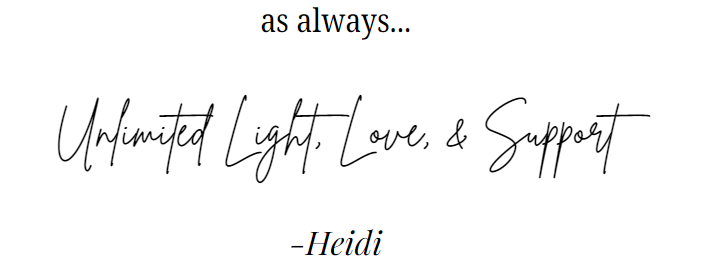 as always...
Unlimited Light, Love, & Support
-Heidi